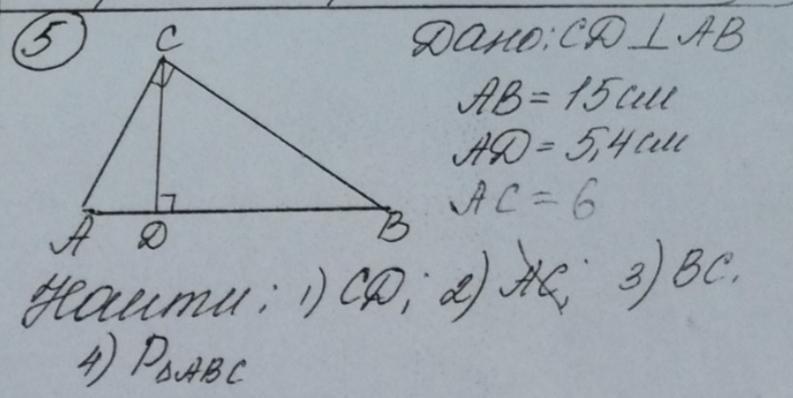 5
C
Дано: CD ⊥ AB
AB = 15 см
AD = 5,4 см
AC = 6
A D B
Найти: 1) CD; 2) AC; 3) BC.
4) P△ABC